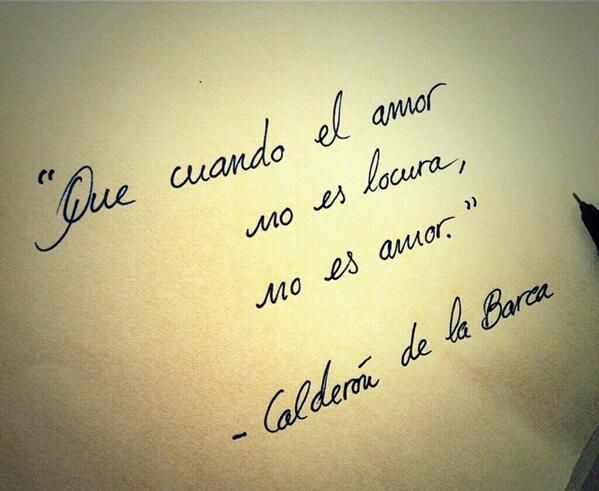 "Que cuando el amor
no es locura,
no es amor."
- Calderón de la Barca